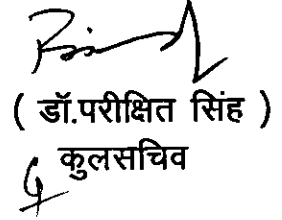 ( डॉ.परीक्षित सिंह )
कुलसचिव